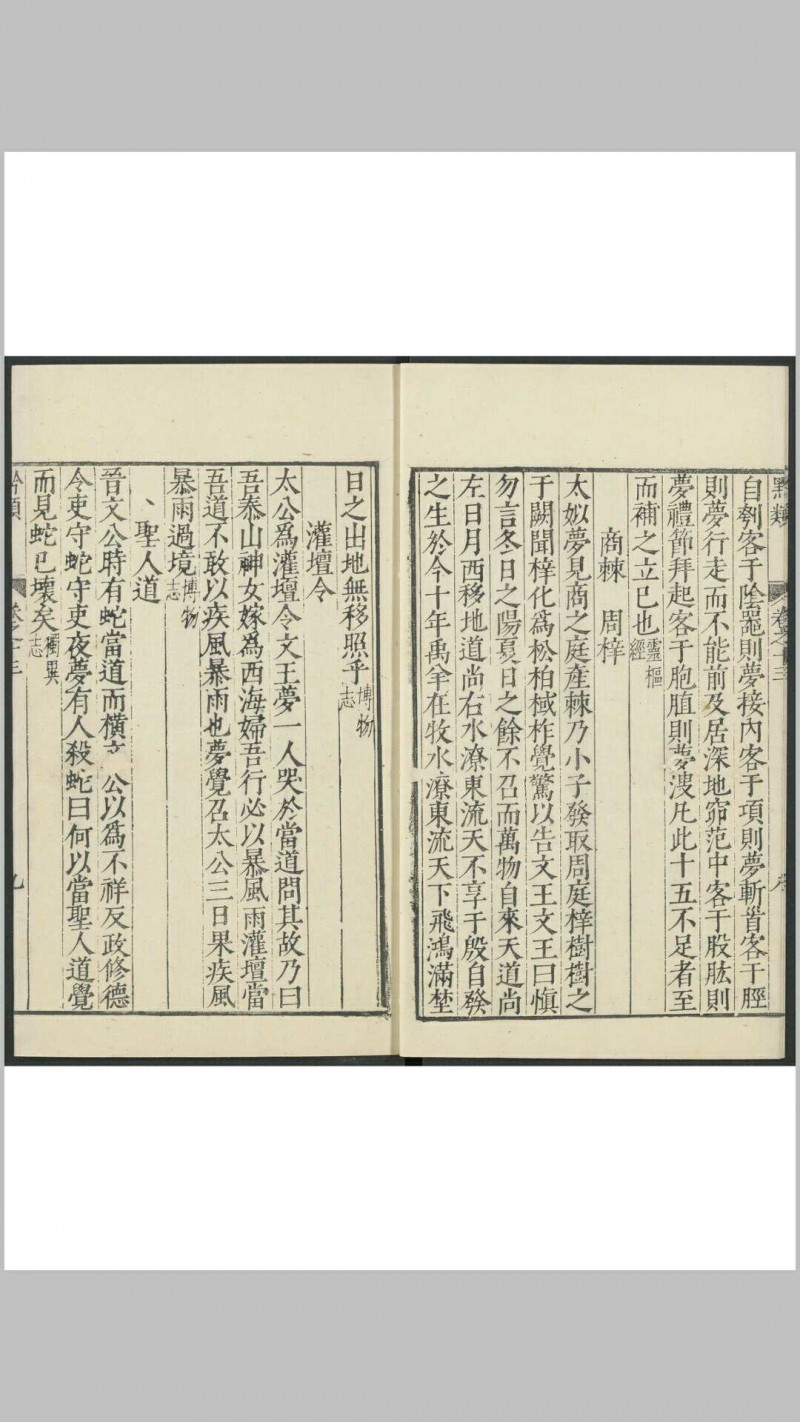 自刳客于陰噐則夢接內客于項則夢斬首客于脛
則夢行走而不能前及居深地窌苑中客于股肱則
夢禮節拜起客于胞䐈則夢溲凡此十五不足者至
而補之立已也靈樞經
商棘　周梓
太姒夢見商之庭産棘乃小子發取周庭梓樹樹之
于闕聞梓化爲松柏棫柞覺驚以告文王文王曰慎
勿言冬日之陽夏日之餘不召而萬物自來天道尚
左日月西移地道尚右水潦東流天不享于殷自發
之生於今十年禹羊在牧水潦東流天下飛鴻滿埜
日之出地無移照乎博物志
灌壇令
太公爲灌壇令文王夢一人哭於當道問其故乃曰
吾泰山神女嫁爲西海婦吾行必以暴風雨灌壇當
吾道不敢以疾風暴雨也夢覺召太公三日果疾風
暴雨過境博物志
、聖人道
晉文公時有蛇當道而橫文公以爲不祥反政修德
令吏守蛇守吏夜夢有人殺蛇曰何以當聖人道覺
而見蛇已壞矣獨異志
九